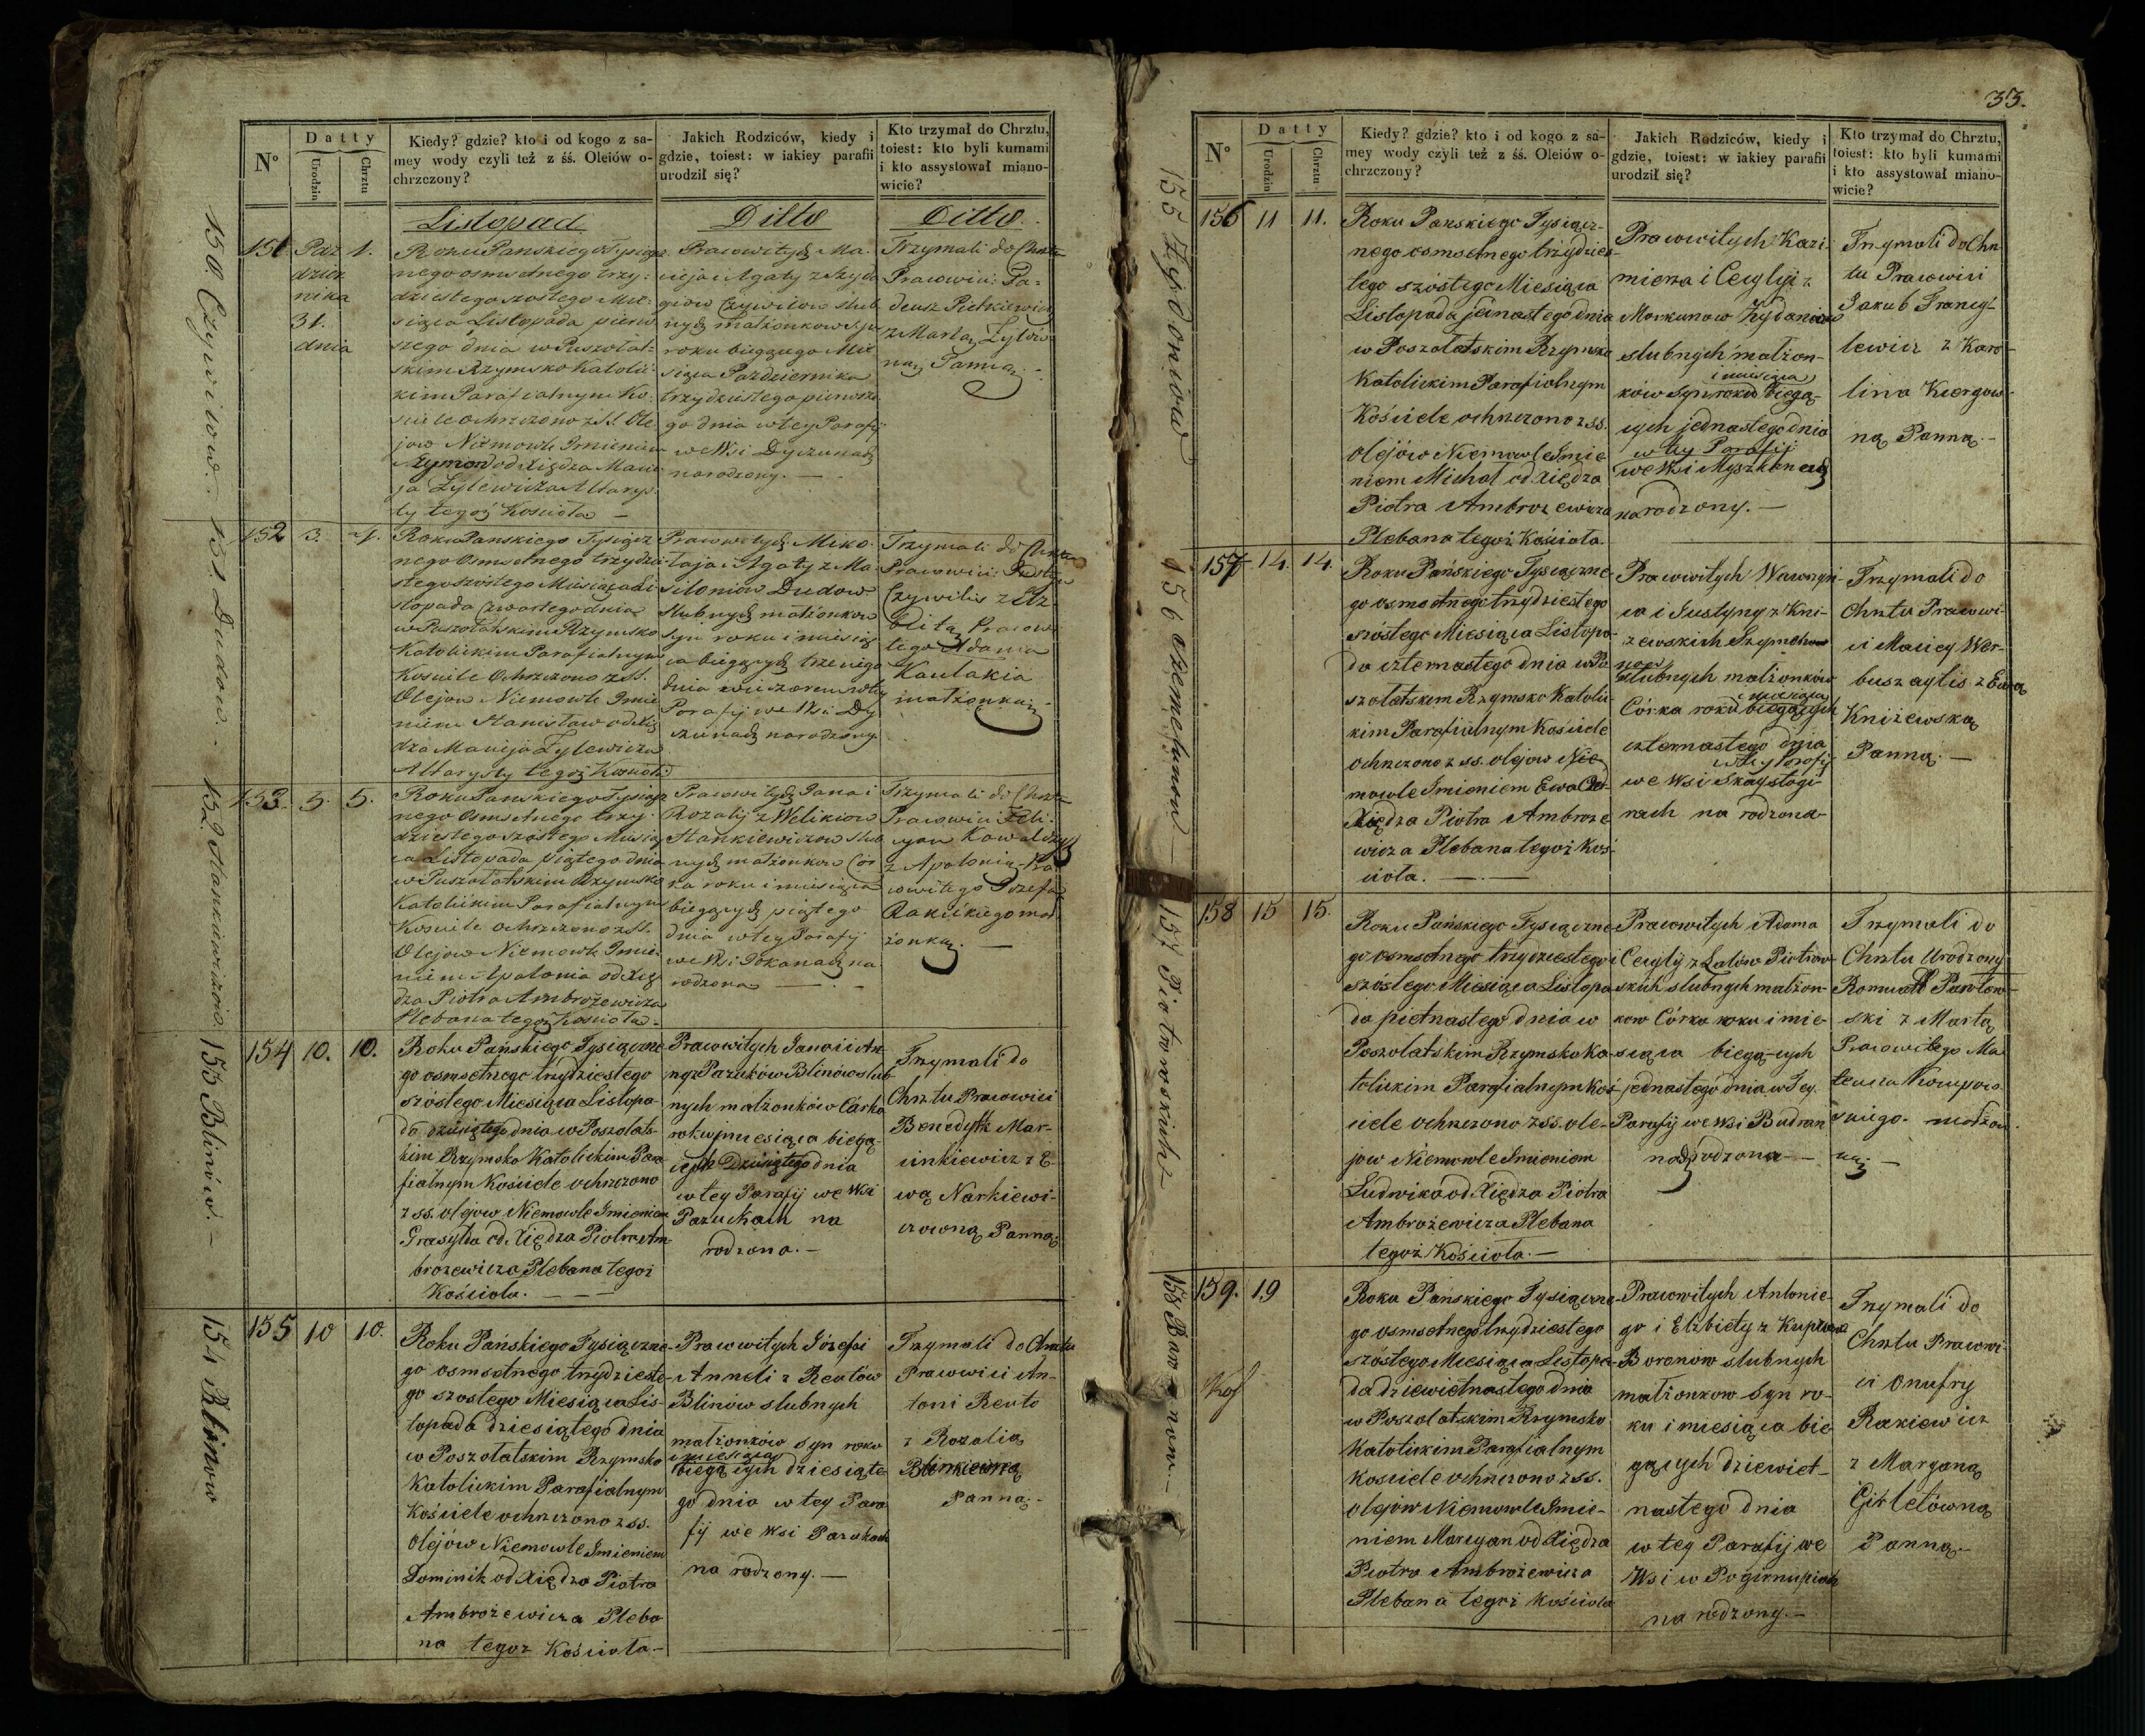 N°
Datty
Urodzin
Chrztu
Kiedy? gdzie? kto i od kogo z sa-
mey wody czyli też z śś. Oleiów o-
chrzczony?
Jakich Rodziców, kiedy i
gdzie, toiest: w iakiey parafii
urodził się?
Kto trzymał do Chrztu,
toiest: kto byli kumami
i kto assystował miano-
wicie?
Listopad
Ditto
Ditto.
151. Paz
dzier
nika
31.
dnia
1.
Roku Panskiego Tysiącz
nego osmsetnego trzy-
dziestego szostego Mie-
siąca Listopada pierw
szego dnia w Puszołat-
skim Rzymsko Katolic-
kim Parafialnym Ko-
sciele ochrzczono z SS. Ole
jow Niemowle Imieniem
Szymon od Xiędza Macie
ja Zylewicza Altarys-
ty tegoż Kosciola
Pracowitych Ma-
cieja i Agaty z
Czywilow slub
nych małżonkow Syn
roku bieżącego Mie
siąca Pazdziernika
trzydziestego pierwsze
go dnia w tey Parafij
we Wsi Dyczunach
narodzony. —
Trzymali do Chrztu
Pracowici: Ta-
deusz Pietkiewicz
z Martą Zylow
ną Panną.
152 3. 4.
Roku Panskiego Tysiącz
nego Osmsetnego trzydzie
stego szostego Miesiąca Li
stopada Czwartego dnia
w Puszołatskim Rzymsko
Katolickim Parafialnym
Kosciele Ochrzczono z SS.
Olejow Niemowle Imie
niem Stanisław od Xię
dza Macieja Zylewicza
Altarysty tegoż Kosciola
Pracowitych Miko-
łaja i Agaty z Ma-
siloniow Dudow
slubnych małżonkow
syn roku i miesiąc
ca bieżących trzeciego
dnia wieczorem w tey
Parafij we Wsi Dy
czunach narodzony
Trzymali do Chrztu
Pracowici:
Czywilis z Elz-
bietą Pracowi
tego Adama
Kaulakia
małżonką.
153. 5. 5.
Roku Panskiego Tysiącz
nego Osmsetnego trzy-
dziestego szostego Miesią
ca Listopada piątego dnia
w Puszołatskim Rzymsko
Katolickim Parafialnym
Kosciele ochrzczono z SS.
Olejow Niemowle Imie
niem Apolonia od Xię
dza Piotra Ambrożewicza
Plebana tegoż Kosciola.
Pracowitych Jana i
Rozalij z Welikiow
Stankiewiczow slub
nych małżonkow Cor
ka roku i miesiąca
bieżących piątego
dnia w tey Parafij
we Wsi Pokanach na
rodzona
Trzymali do Chrztu
Pracowici Feli-
cyan Kowalczys
z Apolonią Pra
cowitego Jozefa
Rakickiego mał
żonką. —
154 10. 10.
Roku Pańskiego Tysiączne
go osmsetnego trzydziestego
szóstego Miesiąca Listopa-
da dziesiątego dnia w Poszołats-
kim Rzymsko Katolickim Para
fialnym Kosciele ochrzczono
z ss. olejow Niemowle Imieniem
Grasylda od Xiędza Piotra Am-
brożewicza Plebana tegoż
Kościoła. — — —
Pracowitych Jana i An-
ny z Pazuków Blinów slub
nych małżonków Córka
roku i miesiąca bieżą-
cych Dziesiątego dnia
w tey Parafij we Wsi
Pazukach na
rodzona. —
Trzymali do
Chrztu Pracowici
Benedykt Mar-
cinkiewicz z E-
wą Narkiewi-
czowną Panną.
155 10 10.
Roku Pańskiego Tysiączne
go osmsetnego trzydzieste-
go szostego Miesiąca Lis-
topada dziesiątego dnia
w Poszołatskim Rzymsko
Katolickim Parafialnym
Kościele ochrzczono z ss.
olejów Niemowle Imieniem
Dominik od Xiędza Piotra
Ambrożewicza Pleba
na tegoz Kościoła —
Pracowitych Józefa i
Anneli z Reutów
Blinów slubnych
małżonków syn roku
i miesiąca
bieżących dziesiąte-
go dnia w tey Para
fij we Wsi Pazukach
na rodzony. —
Trzymali do Chrztu
Pracowici An-
toni Reuto
z Rozalią
Panną. -
150. Czywilow. 151 Dudow. 152 Stankiewiczow 153 Blinów. 154 Blinow
33.
N°
Datty
Urodzin
Chrztu
Kiedy? gdzie? kto i od kogo z sa-
mey wody czyli też z śś. Oleiów o-
chrzczony?
Jakich Rodziców, kiedy i
gdzie, toiest: w iakiey parafii
urodził się?
Kto trzymał do Chrztu,
toiest: kto byli kumami
i kto assystował miano-
wicie?
156 11 11.
Roku Panskiego Tysiącz-
nego osmsetnego trzydzies-
tego szóstego Miesiąca
Listopada jednastego dnia
w Poszołatskim Rzymsko
Katolickim Parafialnym
Kościele ochrzczono z ss.
olejów Niemowle Imie
niem Michał od Xiędza
Piotra Ambrożewicza
Plebana tegoż Kościoła.
Pracowitych Kazi-
mierza i Cecylji z
Morkunow Zydaniow
slubnych małżon-
i miesiąca
ków syn roku bieżą-
cych jednastego dnia
w tey Parafij
we Wsi Myszkanach
na rodzony. —
Trzymali do Chrz-
tu Pracowici
Jakub Francy-
lewicz z Karo-
liną Kiergow-
ną Panną. -
157 14. 14
Roku Pańskiego Tysiączne-
go osmsetnego trzydziestego
szóstego Miesiąca Listopa-
da czternastego dnia w Po
szołatskim Rzymsko Katolic-
kim Parafialnym Kościele
ochrzczono z ss. olejow Nie-
mowle Imieniem Ewa od
Xiędza Piotra Ambroże
wicza Plebana tegoż Koś-
cioła. —
Pracowitych Wawrzyń-
ca i Justyny z Kni-
zewskich
slubnych małżonków
i miesiąca
Córka roku bieżących
czternastego dnia
w tey Parafij
we Wsi Skaystogi-
rach na rodzona-
Trzymali do
Chrztu Pracowi-
ci Maciey Wer-
buszaytis z Ewą
Kniżewską
Panną. —
158 15 15.
Roku Pańskiego Tysiączne-
go osmsetnego trzydziestego
szóstego Miesiąca Listopa
da pietnastego dnia w
Poszolatskim Rzymsko Ka
tolickim Parafialnym Koś-
ciele ochrzczono z ss. ole-
jow Niemowle Imieniem
Ludwika od Xiędza Piotra
Ambrożewicza Plebana
tegoż Kościoła. —
Pracowitych Adama
i Cecylij z Łatów Piotrow-
skich slubnych małżon-
kow Córka roku i mie-
siąca bieżących
jednastego dnia w Tey
Parafij we Wsi Budran
nach rodzona —
Trzymali do
Chrztu Urodzony
Romuald Pawłow-
ski z Martą
Pracowitego Ma
teusza
małżon-
ką. —
159. 19
Roku Pańskiego Tysiączne-
go osmsetnego trzydziestego
szóstego Miesiąca Listopa-
da dziewietnastego dnia
w Poszolatskim Rzymsko
Katolickim Parafialnym
Kosciele ochrzczono z ss.
olejów Niemowle Imie-
niem Marcyan od Xiędza
Piotra Ambrożewicza
Plebana tegoż Kościoła
Pracowitych Antonie-
go i Elzbiety z
Boronów slubnych
małżonkow Syn ro-
ku i miesiąca bie
żących dziewiet-
nastego dnia
w tey Parafij we
Wsi w Pogirnupiach
na rodzony. —
Trzymali do
Chrztu Pracowi-
ci Onufry
Rakiewicz
z Maryaną
Girletówną
Panną. —
155 Zydoniow 156 157 Piotrowskich 158 Boronow. —